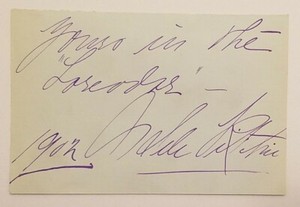 Yours in the
"Toreador" –
1902. Adele Ritchie